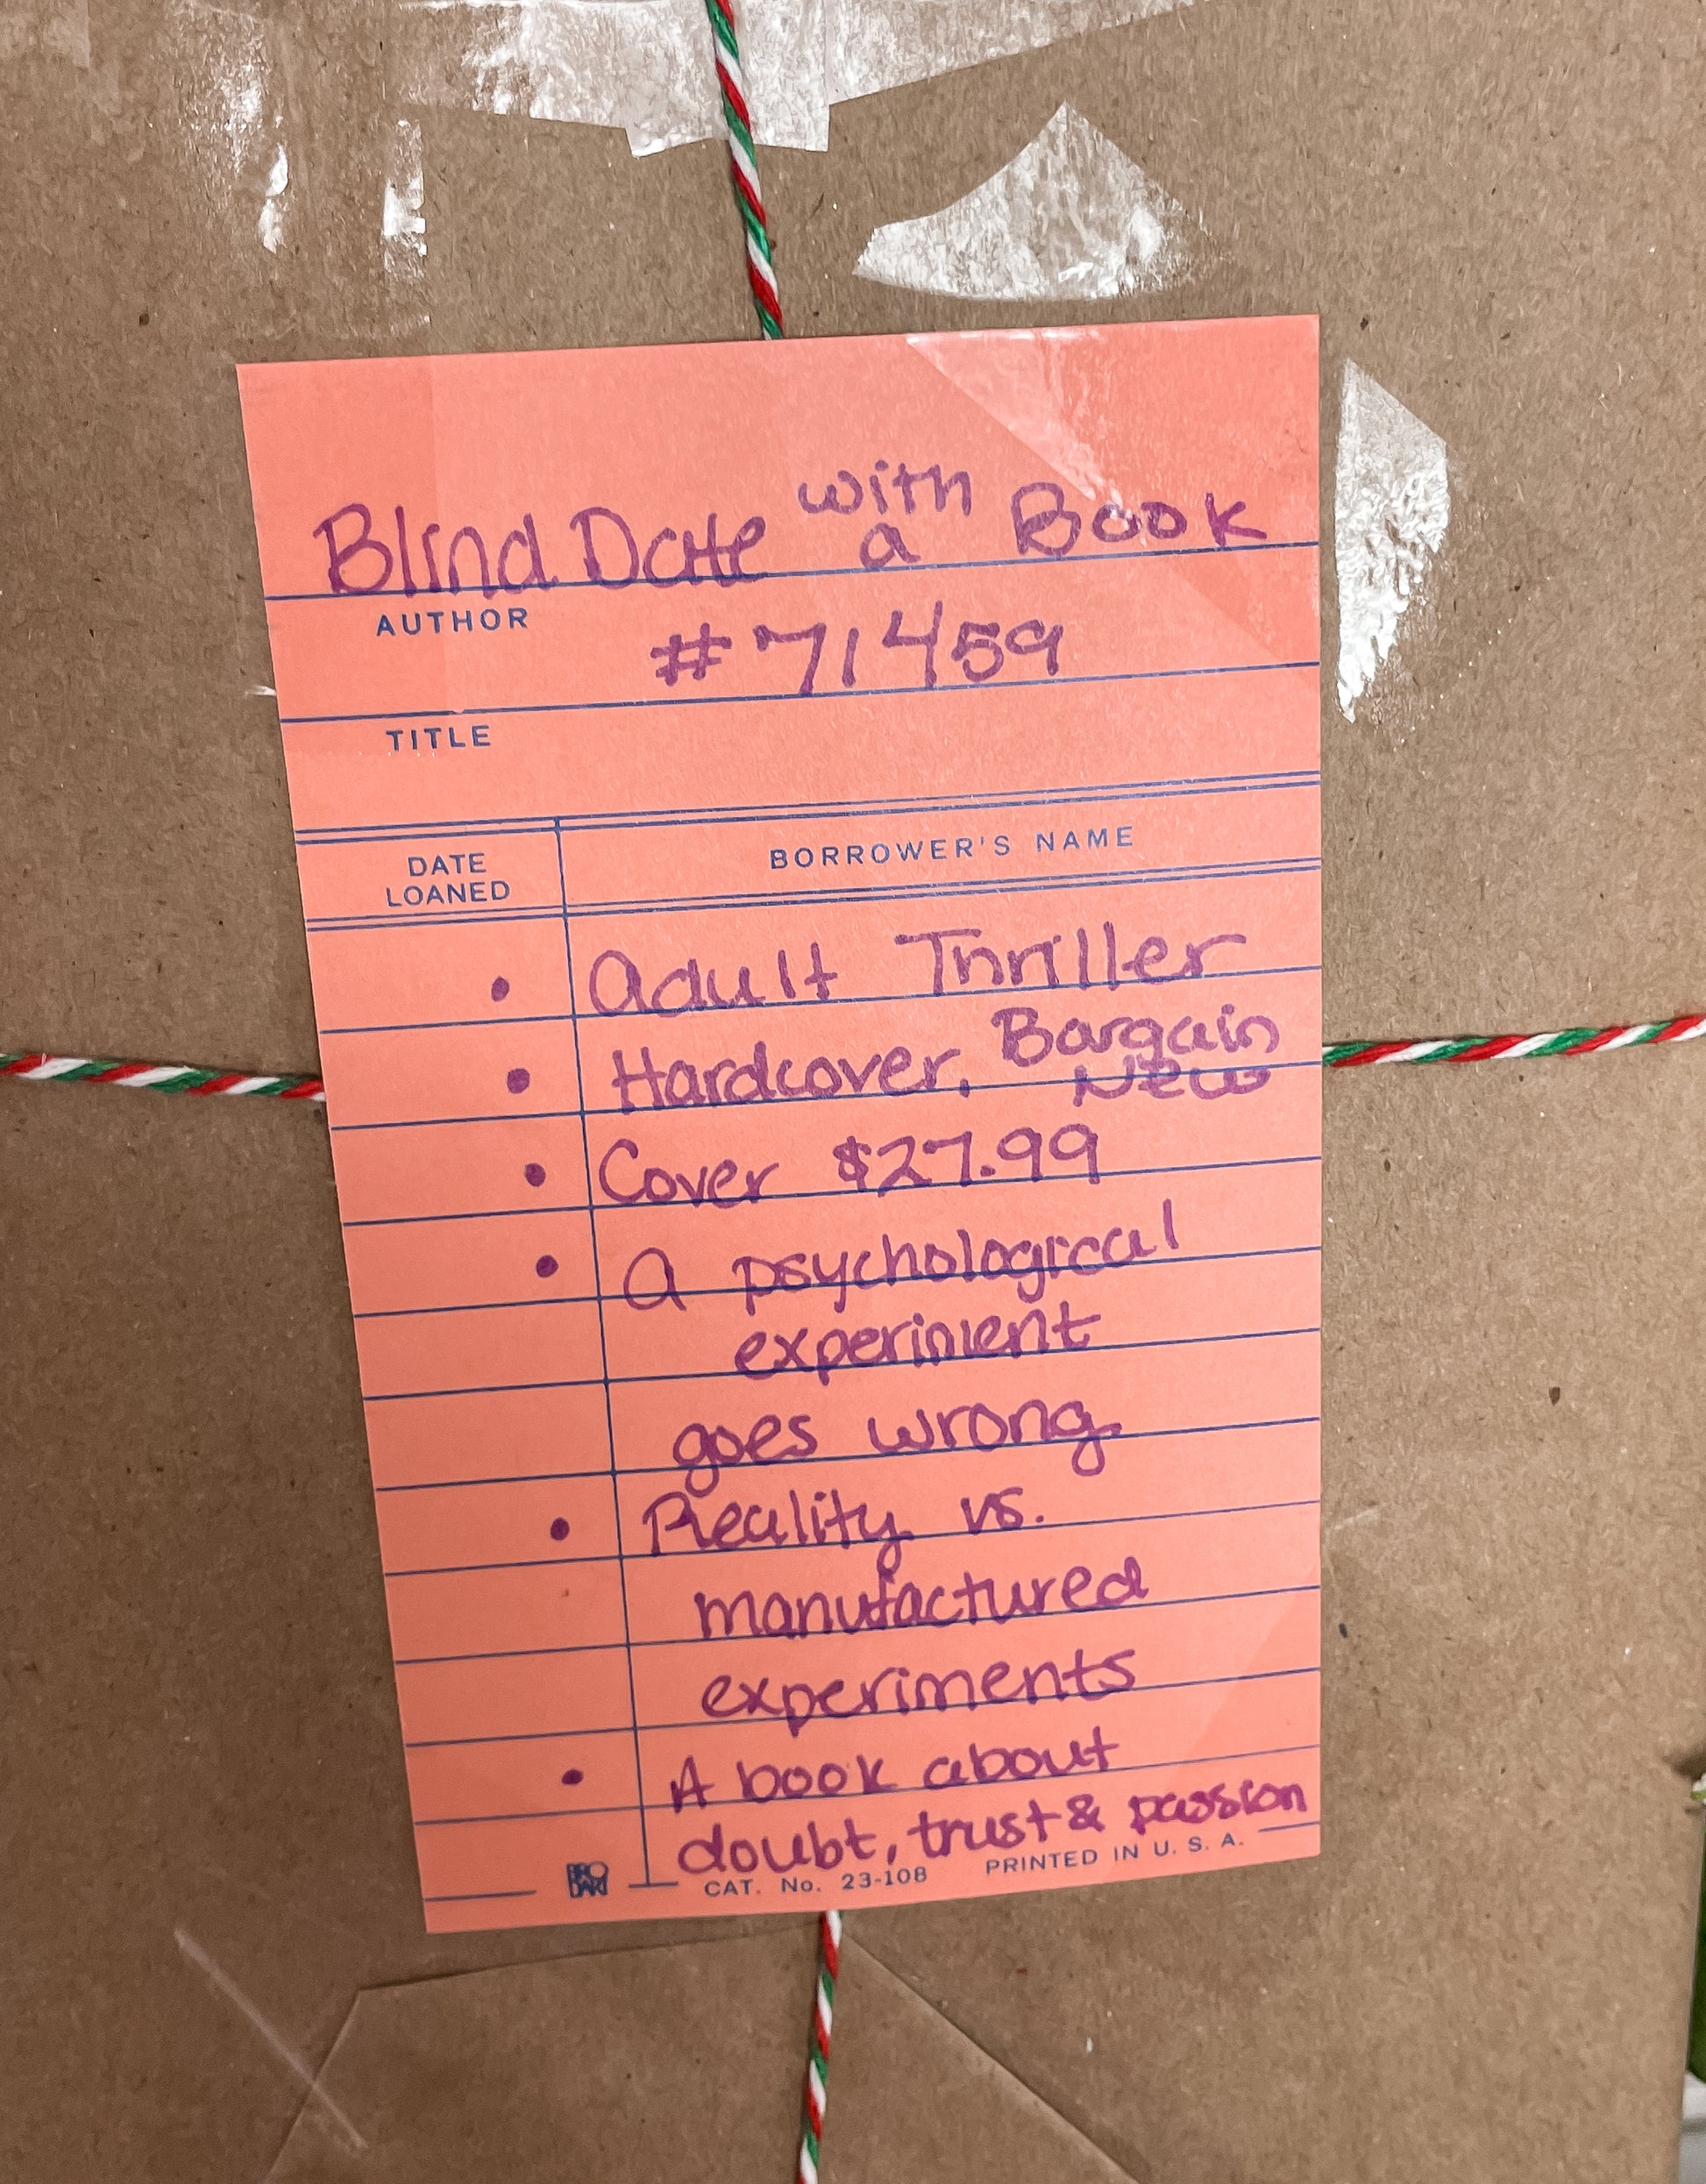 Blind Date with a Book
AUTHOR
#71459
TITLE
DATE LOANED
BORROWER'S NAME
• Adult Thriller
• Hardcover, Bargain New
• Cover $27.99
• A psychological
experiment
goes wrong
• Reality vs.
manufactured
experiments
• A book about
doubt, trust & passion
BRO DART
CAT. No. 23-108 PRINTED IN U. S. A.